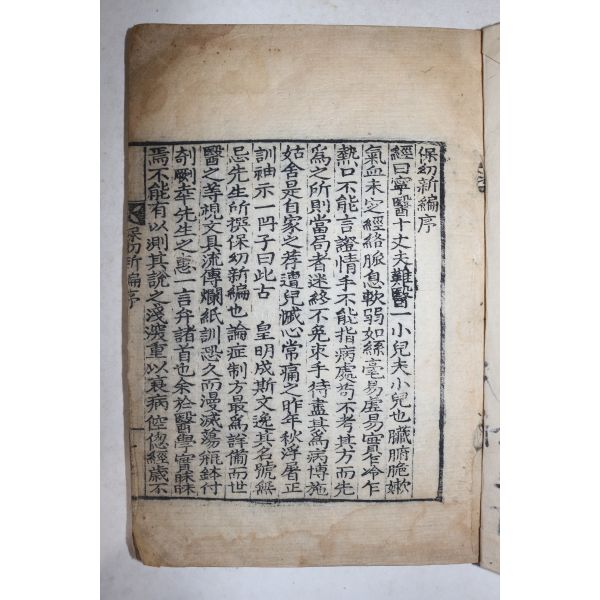 保幼新編序
經曰寧醫十丈夫難醫一小兒夫小兒也臟腑脆嫰
氣血未定經絡脉息軟弱如絲毫易虛易實乍冷乍
熱口不能言證情手不能指病處苟不考其方而先
爲之所則當局者迷終不免束手待盡其爲病博施
姑舍是自家之荐遭兒滅心常痛之昨年秋浮屠正
訓袖示一円子曰此古 皇明成斯文逸其名號無
忌先生所撰保幼新編也論症制方最爲詳備而世
醫之等視文具流傳爛紙訓恐久而漫滅蕩甁鉢付
剞劂幸先生之惠一言弁諸首也余於醫學實昧昧
焉不能有以測其說之淺深重以衰病倥偬經歲不
保幼新編序
一